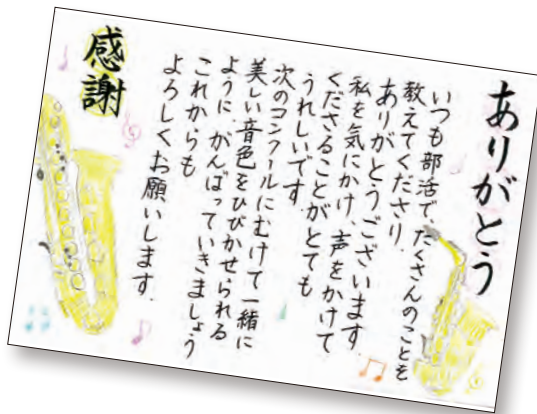 ありがとう
いつも部活で、たくさんのことを
教えてくださり
ありがとうございます。
私を気にかけ、声をかけて
くださることがとても
うれしいです。
次のコンクールにむけて一緒に
美しい音色をひびかせられる
ように、がんばっていきましょう
これからも
よろしくお願いします。
感謝